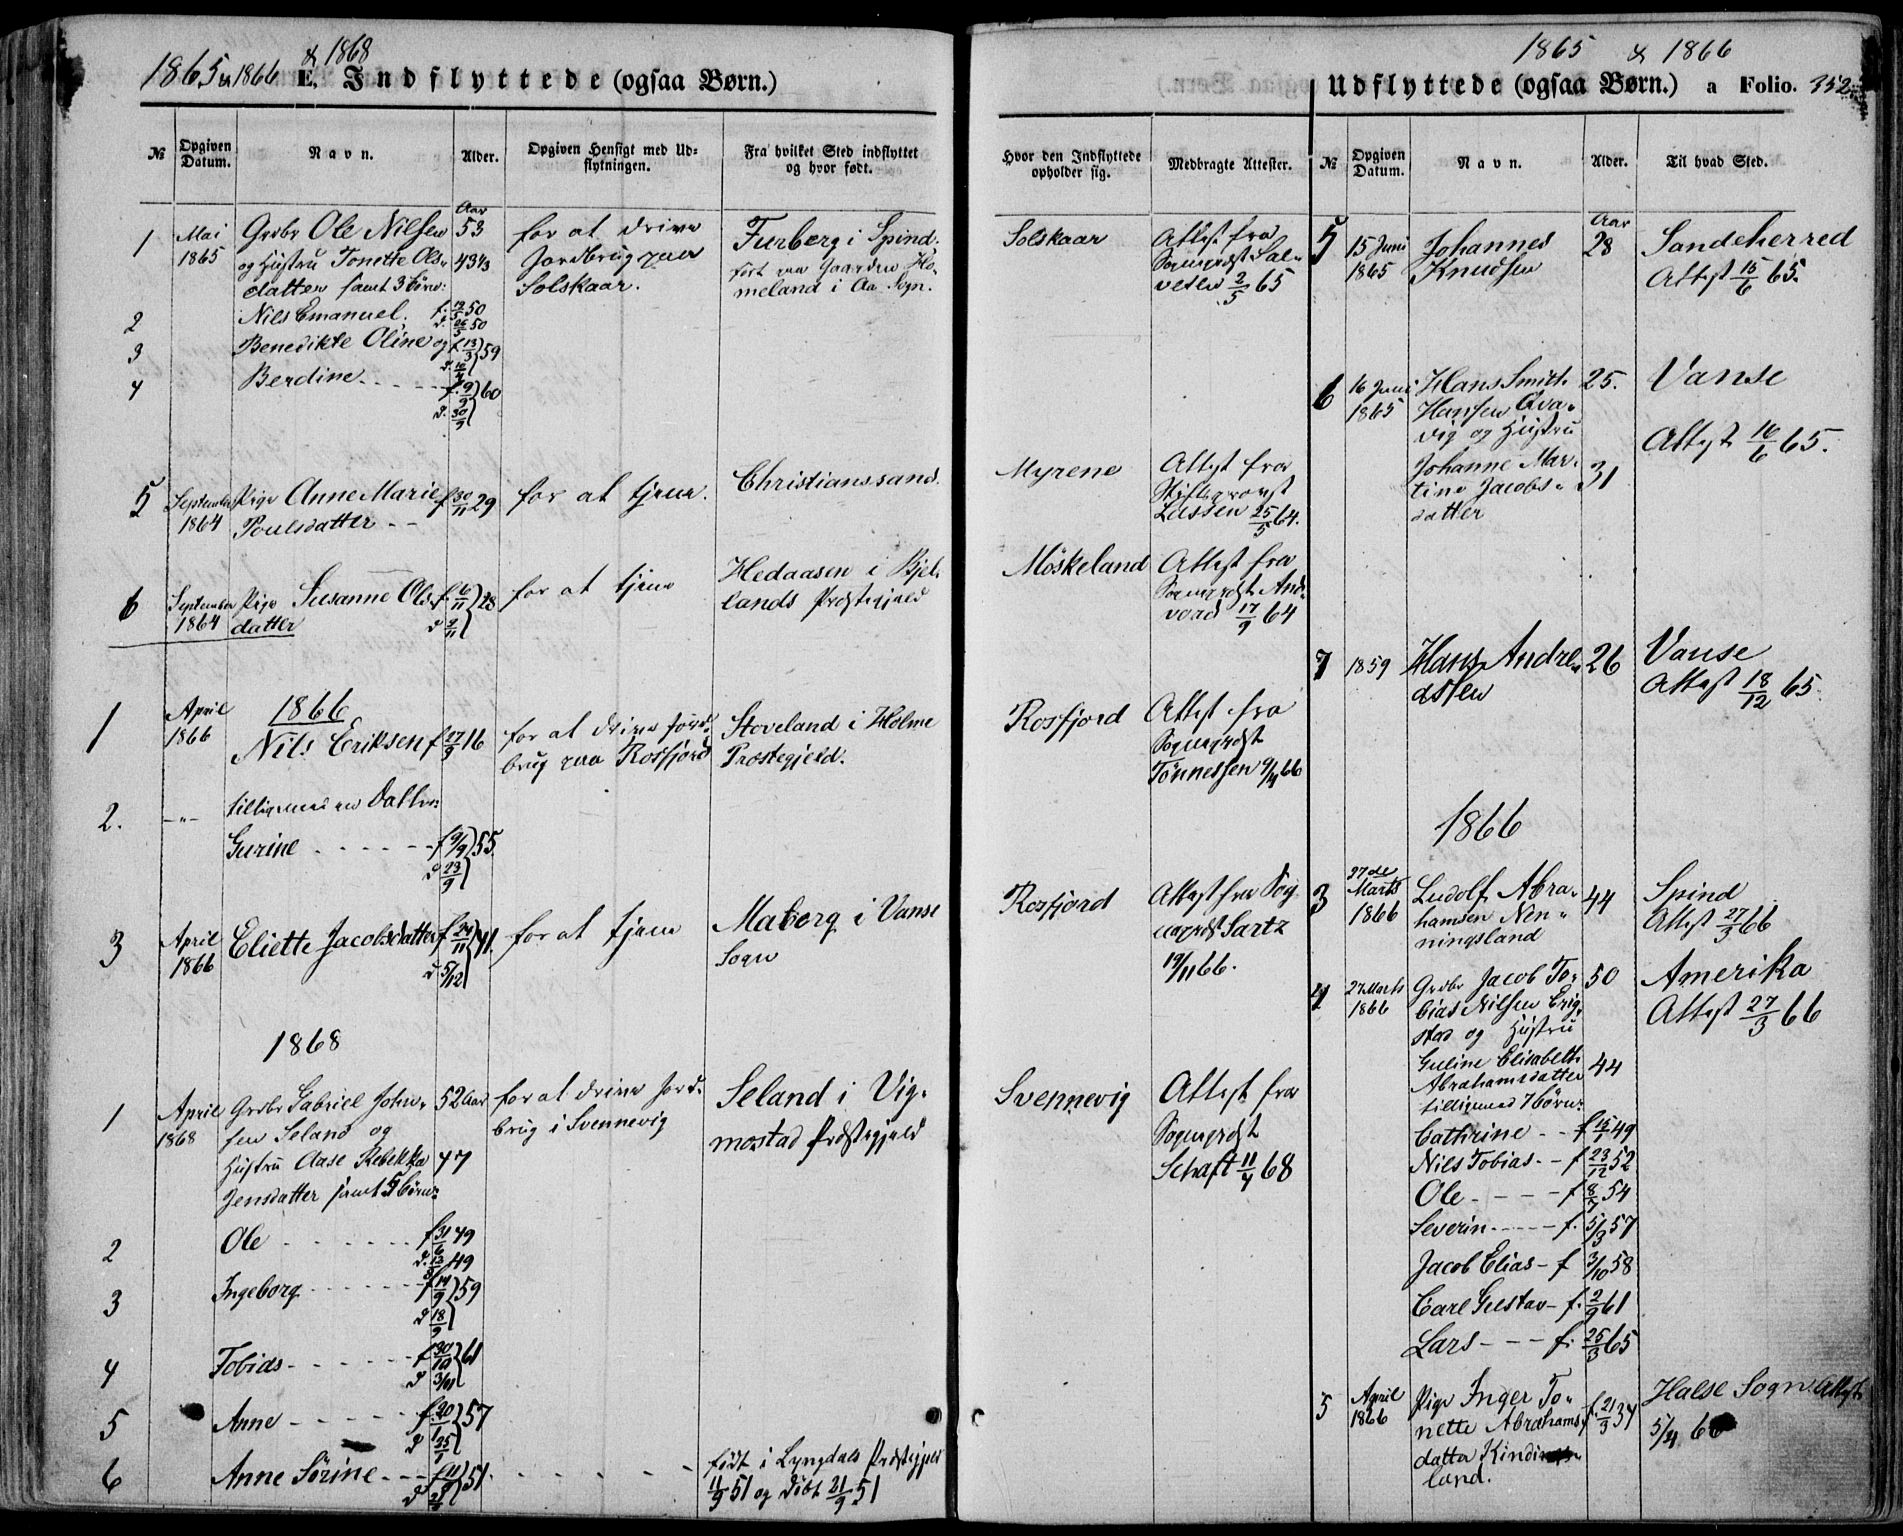 1865 & 1866 & 1868
E. Indflyttede (ogsaa Børn.)
№
Opgiven Datum.
Navn.
Alder.
Opgiven Hensigt med Udflytningen.
Fra hvilket Sted indflyttet og hvor født.
1
Mai
1865
Grdbr Ole Nilsen
og Hustru Tonette Ols-
datter samt 3 Børn:
Aar
53
43
for at drive
Jordbrug paa
Solskaar.
Furberg i Spind.
født paa Gaarden Ho-
meland i Aa Sogn.
2
Nils Emanuel. f.
50
d. 26/5 50
3
Benedikte Oline og f 13/3 59
4
Berdine f. 9/9 60
d. 30/9
5
September
1864
Pige Anne Marie
Poulsdatter
f 30/11 29
for at tjene.
Christianssand.
6
September
1864
Pige Susanne Ols-
datter
f. 6/11 28
d 9/11
for at tjene
Hedaasen i Bjel-
lands Præstegjeld
1866
1
April
1866
Nils Eriksen f 27/9 16
for at drive Jord-
brug paa Rosfjord
Stoveland i Holme
Præstegjeld.
2.
-"-
tilligemed en Datter
Gurine f 9/9 55
d 23/9
3
April
1866
Eliette Jacobsdatter f 24/11 41.
d 5/12
for at tjene
Maberg i Vanse
Sogn
1868
1
April
1868
Grdbr Gabriel John-
sen Seland og
Hustru Aase Rebekka
Jensdatter samt 5 børn:
52 Aar
47
for at drive Jord-
brug i Svennevig
Seland i Vig-
mostad Præstegjeld
2
Ole f 49
d. 49
3
Ingeborg f 14/9 59
d 18/9
4
Tobias f 30/10 61
d 3/11
5
Anne f. 20 57
d 25
6
Anne Sørine f 11/9 51.
d 21/9
født i Lyngdals Præstegjeld
11/9 51 og døbt 21/9 51
1865 & 1866
Udflyttede (ogsaa Børn.) a Folio. 352
Hvor den Indflyttede opholder sig.
Medbragte Attester.
№
Opgiven Datum.
Navn.
Alder.
Til hvad Sted.
Solskaar
Attest fra
Sogneprest Sal-
vesen 2/5 65
Myrene
Attest fra
Stiftsprovst
Lassen 25/5 64.
Møskeland
Attest fra
Sogneprst And-
vord 17/9 64
Rosfjord
Attest fra
Sogneprst
Tønnessen 9/4 66
Rosfjord
Attest fra Sog-
neprst Sartz
19/11 66.
Svennevig
Attest fra
Sogneprst
Schaft 11/4 68
5
15 Juni
1865
Johannes
Knudsen
Aar
28
Sandeherred
Attest 15/6 65.
6
16 Juni
1865
Hans Smith
Hansen Qva-
vig og Hustru
Johanne Mar-
tine Jacobs-
datter
25.
31
Vanse
Attest 16/6 65.
7
1859
Hans Andre-
assen
26
Vanse
Attest 18/12 65
1866
3
27de
Marts
1866
Ludolf Abra-
hamsen Nen-
ningsland
44
Spind
Attest 27/3 66
4
27 Marts
1866
Grdbr Jacob To-
bias Nilsen Erig-
stad og Hustru
Guline Elisabeth
Abrahamsdatter
tilligemed 7 børn:
50
44
Amerika
Attest 27/3 66
Cathrine f 15/1 49
Nils Tobias f 23/12 52
Ole f 8/7 54
Severin f. 5/3 57
Jacob Elias f 3/10 58
Carl Gustav f. 2/9 61
Lars f. 25/3 65
5
April
1866
Pige Inger To-
nette Abrahams-
datter
land.
f. 21/3 34
Halse Sogn Attest
5/4 66